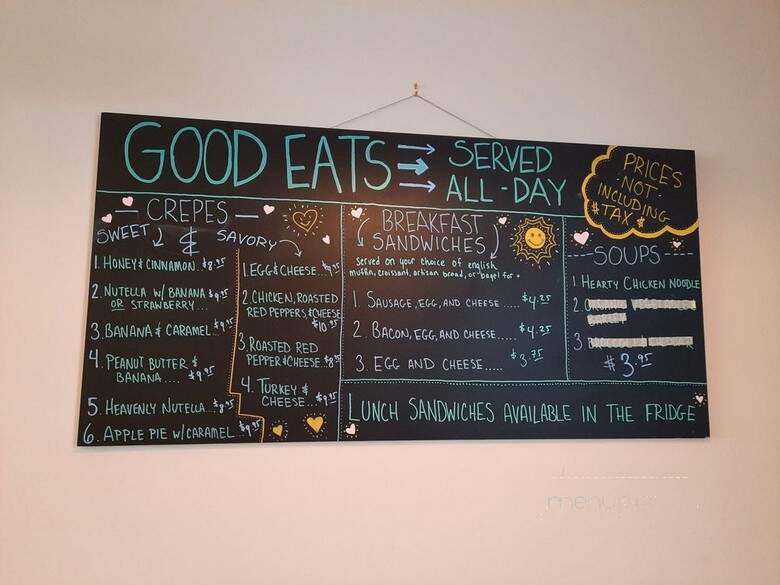 GOOD EATS → SERVED
ALL-DAY
PRICES
NOT
INCLUDING
TAX
CREPES
SWEET & SAVORY
1. HONEY & CINNAMON.. $8.95
2. NUTELLA W/ BANANA $9.95
OR STRAWBERRY...
3. BANANA & CARAMEL.. $9.95
4. PEANUT BUTTER &
BANANA.... $9.95
5. HEAVENLY NUTELLA..
6. APPLE PIE W/CARAMEL $9.95
1. EGG & CHEESE..
2. CHICKEN, ROASTED
RED PEPPERS, & CHEESE
$10.95
3. ROASTED RED
PEPPER & CHEESE..
4. TURKEY &
CHEESE... $9.95
BREAKFAST
SANDWICHES
Served on your choice of english
muffin, croissant, artisan bread, or bagel for
1. SAUSAGE, EGG, AND CHEESE.... $4.25
2. BACON, EGG, AND CHEESE..... $4.25
3. EGG AND CHEESE..... $3.75
SOUPS
1. HEARTY CHICKEN NOODLE
2.
3.
$3.95
LUNCH SANDWICHES AVAILABLE IN THE FRIDGE